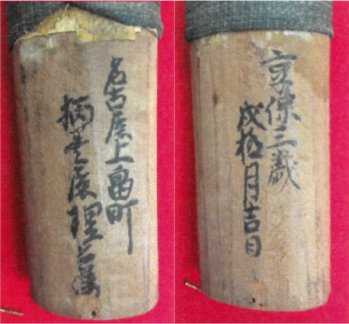 名古屋上畠町
柄巻屋理兵衛
享保三歳
戌極月吉日